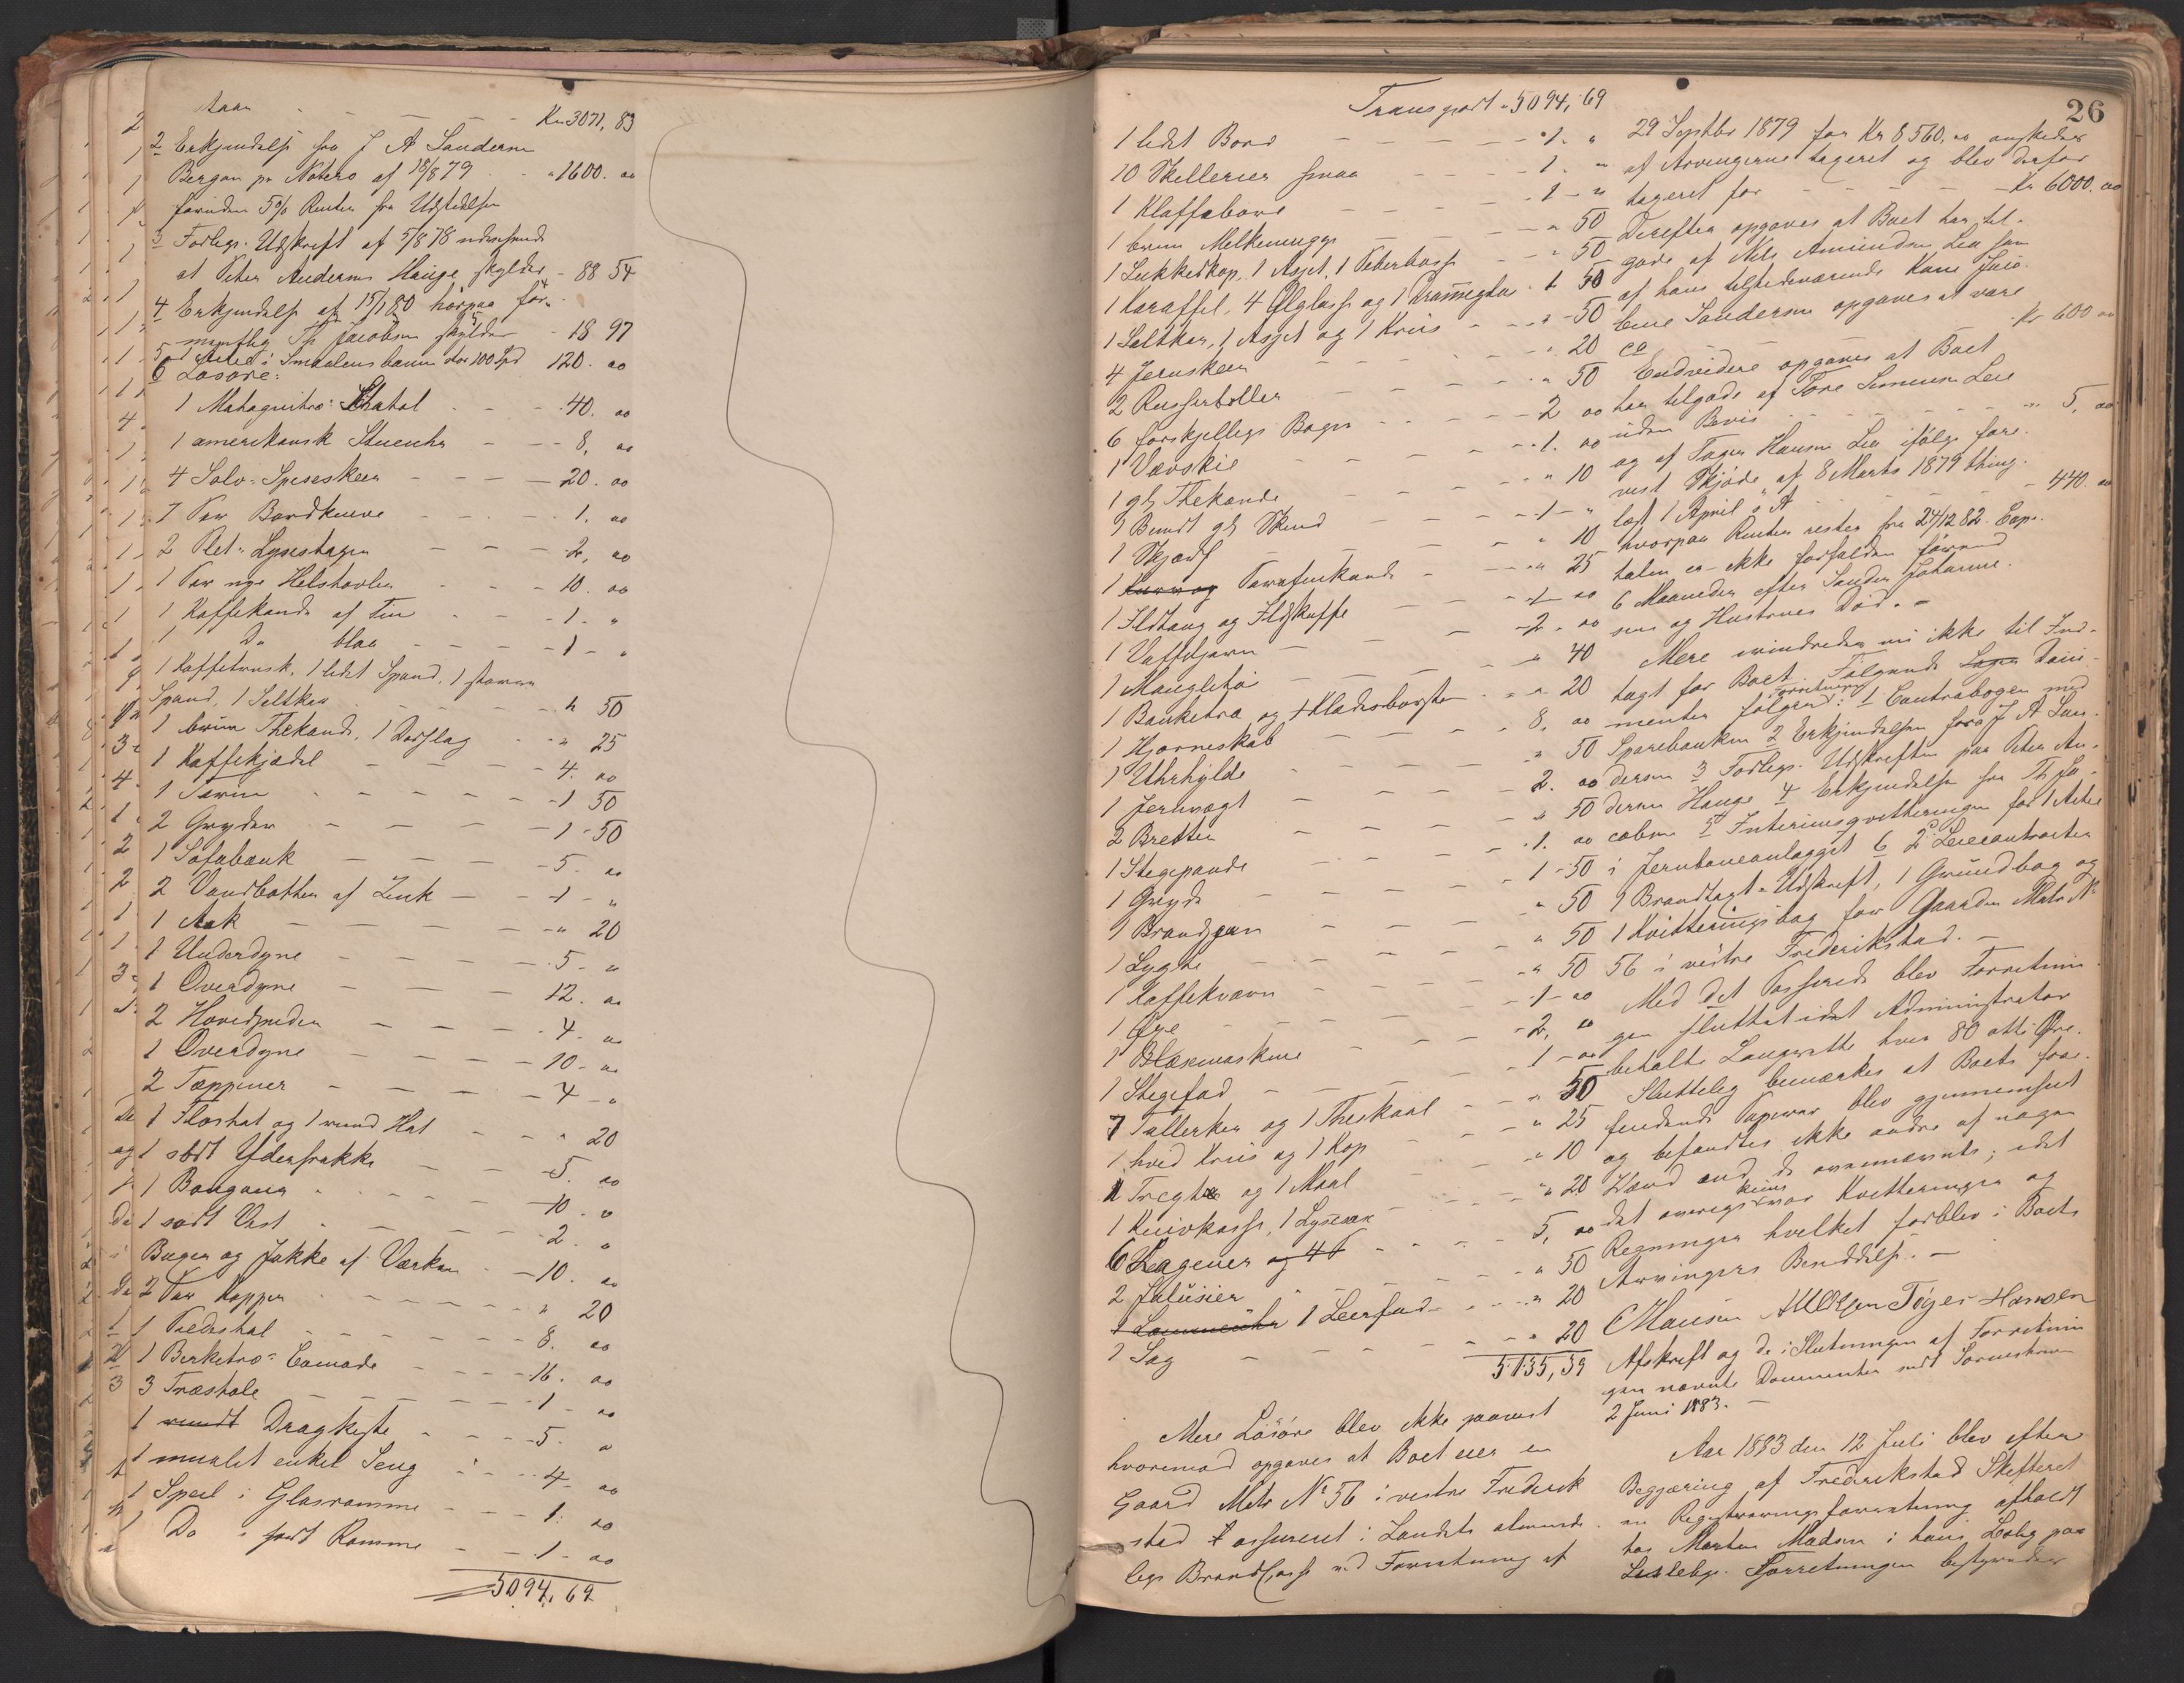 Kr 3071,83
2 Erkjendelse fra J A Sandersen
Bergan pr Nøtterø af 18/8 79 - " 1600. 00
foruden 5% Renter fra Udstedelsen
3 Forligs-Udskrift af 5/8 78
at Peter Andersen Hauge skylder - 88 54
4 Erkjendelse af 15/1 80 hvorpaa for-
mentlig Th Jacobsen skylder - 18 97
5 1 Actie i Smaalensbanen stor 100 Spd 120. 00
6 Løsøre:
1 Mahognitræ: Schatol - - 40. 00
1 amerikansk Stueuhr - - 8, 00
4 Sølv-Spiseskeer - - 20. 00
7 Par Bordknive - - 1. 00
2 Plet-Lysestager - - 2, 00
1 Par nye Helstøvler - - 10. 00
1 Kaffekande af Tin - - 1. "
1 Do blaa - - 1 - "
1 Kaffetragt, 1 lidet Spand, 1 større
Spand, 1 Saltkar - - " 50
1 brun Thekande, 1 Dørslag - " 25
1 Kaffekjædel - - 4. 00
1 Tørin - - 1 50
2 Gryder - - 1 - 50
1 Sofabænk - - 5. 00
2 Vandbøtter af Zink - - 1 - "
1 Aak - - " 20
1 Underdyne - - 5 - "
1 Overdyne - - 12. 00
2 Hovedpuder - - 4. 00
1 Overdyne - - 10 - 00
2 Tæppener - - 4 - "
1 Floshat og 1 rund Hat - - " 20
1 sort Yderfrakke - - 5. 00
1 Bongang - - 10. "
1 sort Vest - - 2. "
Buxer og Jakke af Værken - 10. 00
2 Par Kopper - - " 20
1 Piedestal - - 8. 00
1 Birketræ-Comode - - 16. 00
3 Træstole - - 1 - 00
1 rundt Dragkiste - - 5. "
1 malet enkel Seng - - 4 - 00
1 Speil i Glasramme - - 1. 00
1 Do i sort Ramme - - 1 - 00
5094,69
26
Transport - 5094,69
1 lidet Bord - - 1. "
10 Skillerier smaa - - 1. "
1 Klaffebord - - 1 - "
1 brun Melkemugge - - " 50
1 Sukkerkop, 1 Asjet, 1 Peberbøsse - " 50
1 Karaffel, 4 Ølglasse og 1 Dramneglas - 1 50
1 Saltkar, 1 Asjet og 1 Kruus - - " 50
4 Jernskeer - - " 20
2 Punseboller - - " 50
6 forskjellige Bøger - - 2 00
1 Vævskie - - 1. 00
1 gl Thekande - - " 10
1 Bundt gl Skind - - 1 - "
1 Skjærf - - " 10
1 Kurv og Parafinkande - - " 25
1 Ildtang og Ildskuffe - - 1 00
1 Vaffeljern - - 2. 00
1 Mangletøi - - " 40
1 Banketræ og 1 Klædesbørste - " 20
1 Hjørneskab - - 8, 00
1 Uhrhylde - - " 50
1 Jernvægt - - 2. 00
2 Bretter - - " 50
1 Stegepande - - 1. 00
1 Gryde - - 1 - 50
1 Brandjern - - " 50
1 Lygte - - " 50
1 Kaffekværn - - " 50
1 Øxe - - 1 - 00
1 Blæsemaskine - - 2, 00
1 Stegefad - - 1 - 00
7 Tallerken og 1 Theskaal - - " 50
1 hvid Kruus og 1 Kop - - " 25
1 Tregt og 1 Maal - - " 10
1 Knivkasse, 1 Lysesax - - " 20
6 Lagener og 4 F - - 5, 00
2 Jalusier - - " 50
1 Lommeuhr 1 Leerfad - - " 20
1 Sag - - " 20
5135,39
Mere Løsøre blev ikke paavist
hvorimod opgaves at Boet eier en
Gaard Matr No 56 i vestre Fredrik
stad assureret i Landets alminde-
lige Brandkasse ved Forretning af
29 Septbr 1879 for Kr 8560, 00 ønskedes
af Arvingerne taxeret og blev derfor
taxeret for - - Kr 6000. 00
Derefter opgaves at Boet har til-
gode af Nils Amundsen Lie som
af hans tilstedeværende Kone Jaco-
bine Sandersen opgaves at være
ca - Kr 600 00
Endvidere opgaves at Boet
har tilgode af Tore Simensen Lie
uden Bevis - - " 5, 00
og af Tøger Hansen Lie ifølge fore-
vist Skjøde af 8 Marts 1879 thing-
læst 1 April s. A - - 440. 00
hvorpaa Renter rester fra 24/12 82. Capi-
talen er ikke forfalden førend
6 Maaneder efter Sander Johanne-
sens og Hustrues Død. -
Mere erindredes nu ikke til Ind-
tægt for Boet. Følgende Docu-
menter følger Forretningen: 1 Contrabogen med
Sparebanken 2 Erkjendelsen fra J A San-
dersen 3 Forligs-Udskriften paa Peter An-
dersen Hauge 4 Erkjendelse fra Th Ja-
cobsen 5 Interimsqvitteringen for 1 Actie
i Jernbaneanlægget 6 2 Leiecontracter
1 Brandtaxt-Udskrift, 1 Grundbog og
1 Kvitteringsbog for Gaarden Matr No
56 i vestre Frederikstad. -
Med det Passerede blev Forretnin-
gen sluttet idet Administrator
betalte Laugrette hver 80 otti Øre.
Slutteleg bemærkes at Boets fore-
findende Papirer blev gjennemseet
og befandtes ikke andre af nogen
Værd end de ovennævnte; idet
det øvrige kuns var Kvitteringer og
Regninger hvilket forblev i Boets
Arvingers Besiddelse. -
C Hansen A M Olsen Tøger Hansen
Afskrift og de i Slutningen af Forretnin
gen nævnte Documenter sendt Sorenskriver
2 Juni 1883. -
Aar 1883 den 12 Juli blev efter
Begjæring af Frederikstad Skifteret
en Registreringsforretning afholdt
hos Morten Madsen i hans Bolig paa
Lisleby. Forretningen bestyredes